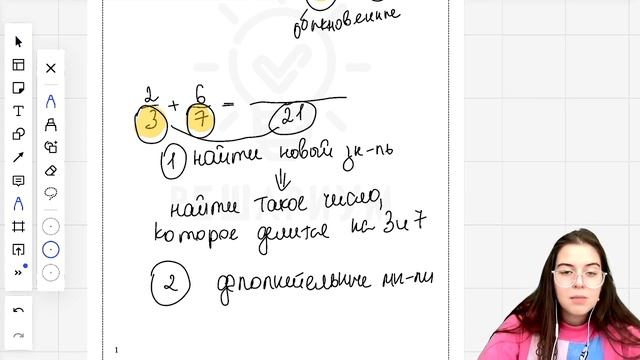 обыкновенные
2/3 + 6/7 = /21
1 найти новый зн-ль
найти такое число,
которое делится на 3 и 7
2 дополнительные мн-ли
РЕШАРИУМ
1